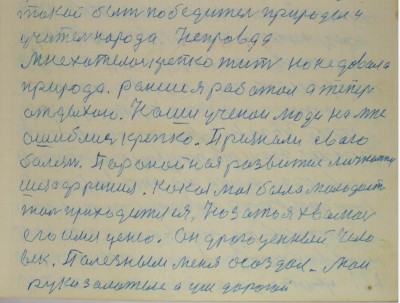 такой быт победител природел и
учител народа. Неправда
Мне хателос крепко жит но не довала
природа. Раниш я работал а тепер
отдыхаю. Наши ученои люди на мне
ошиблис крепко. Признали сваго
болезн. Паронойная развитие личности
шизафрения. Какая моя была молодост
там приходится, Но за то я хвалюс
его имя ценю. Он дрогоценный чело-
век. Полезным меня осоздал. Мои
руки залатые а ум дорогой